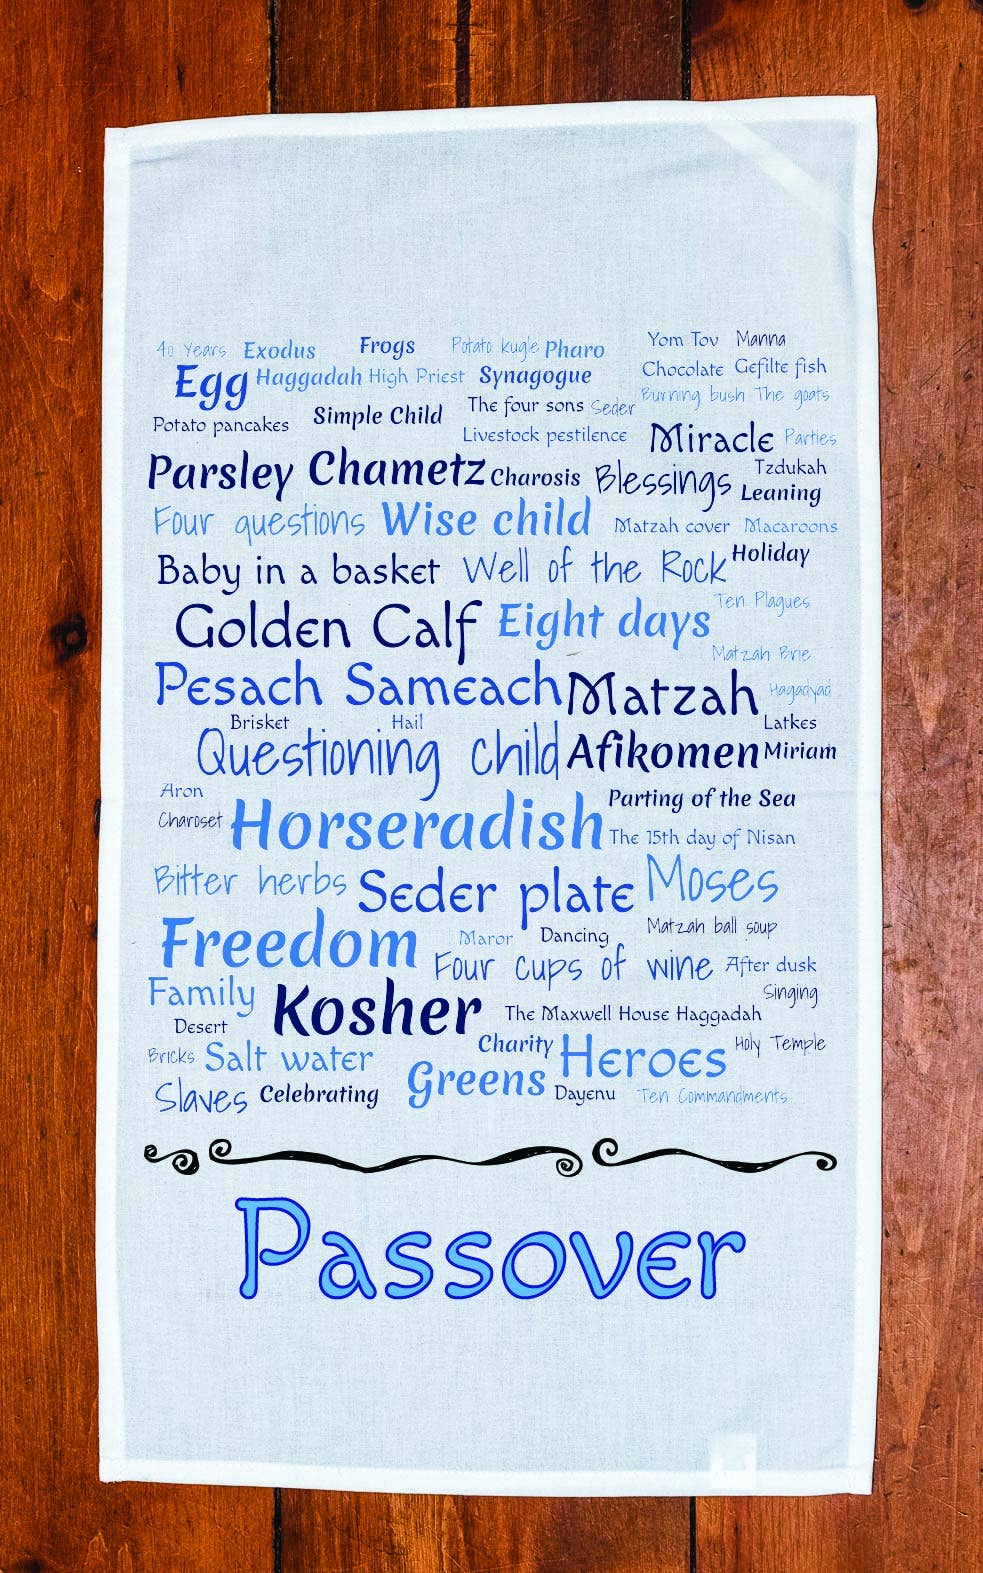 40 Years Exodus Frogs Potato kugle Pharo Yom Tov Manna
Egg Haggadah High Priest Synagogue Chocolate Gefilte fish
Potato pancakes Simple Child The four sons Seder Burning bush The goats
Livestock pestilence Miracle Parties
Parsley Chametz Charosis Blessings Tzdukah
Leaning
Four questions Wise child Matzah cover Macaroons
Baby in a basket Well of the Rock Holiday
Golden Calf Eight days Ten Plagues
Matzah Brie
Pesach Sameach Matzah Hagadyad
Brisket Hail Latkes
Questioning child Afikomen Miriam
Aron Parting of the Sea
Charoset Horseradish The 15th day of Nisan
Bitter herbs Seder plate Moses
Freedom Maror Dancing Matzah ball soup
Four cups of wine After dusk
Family Kosher Singing
Desert The Maxwell House Haggadah
Bricks Salt water Charity Heroes Holy Temple
Slaves Celebrating Greens Dayenu Ten Commandments
Passover